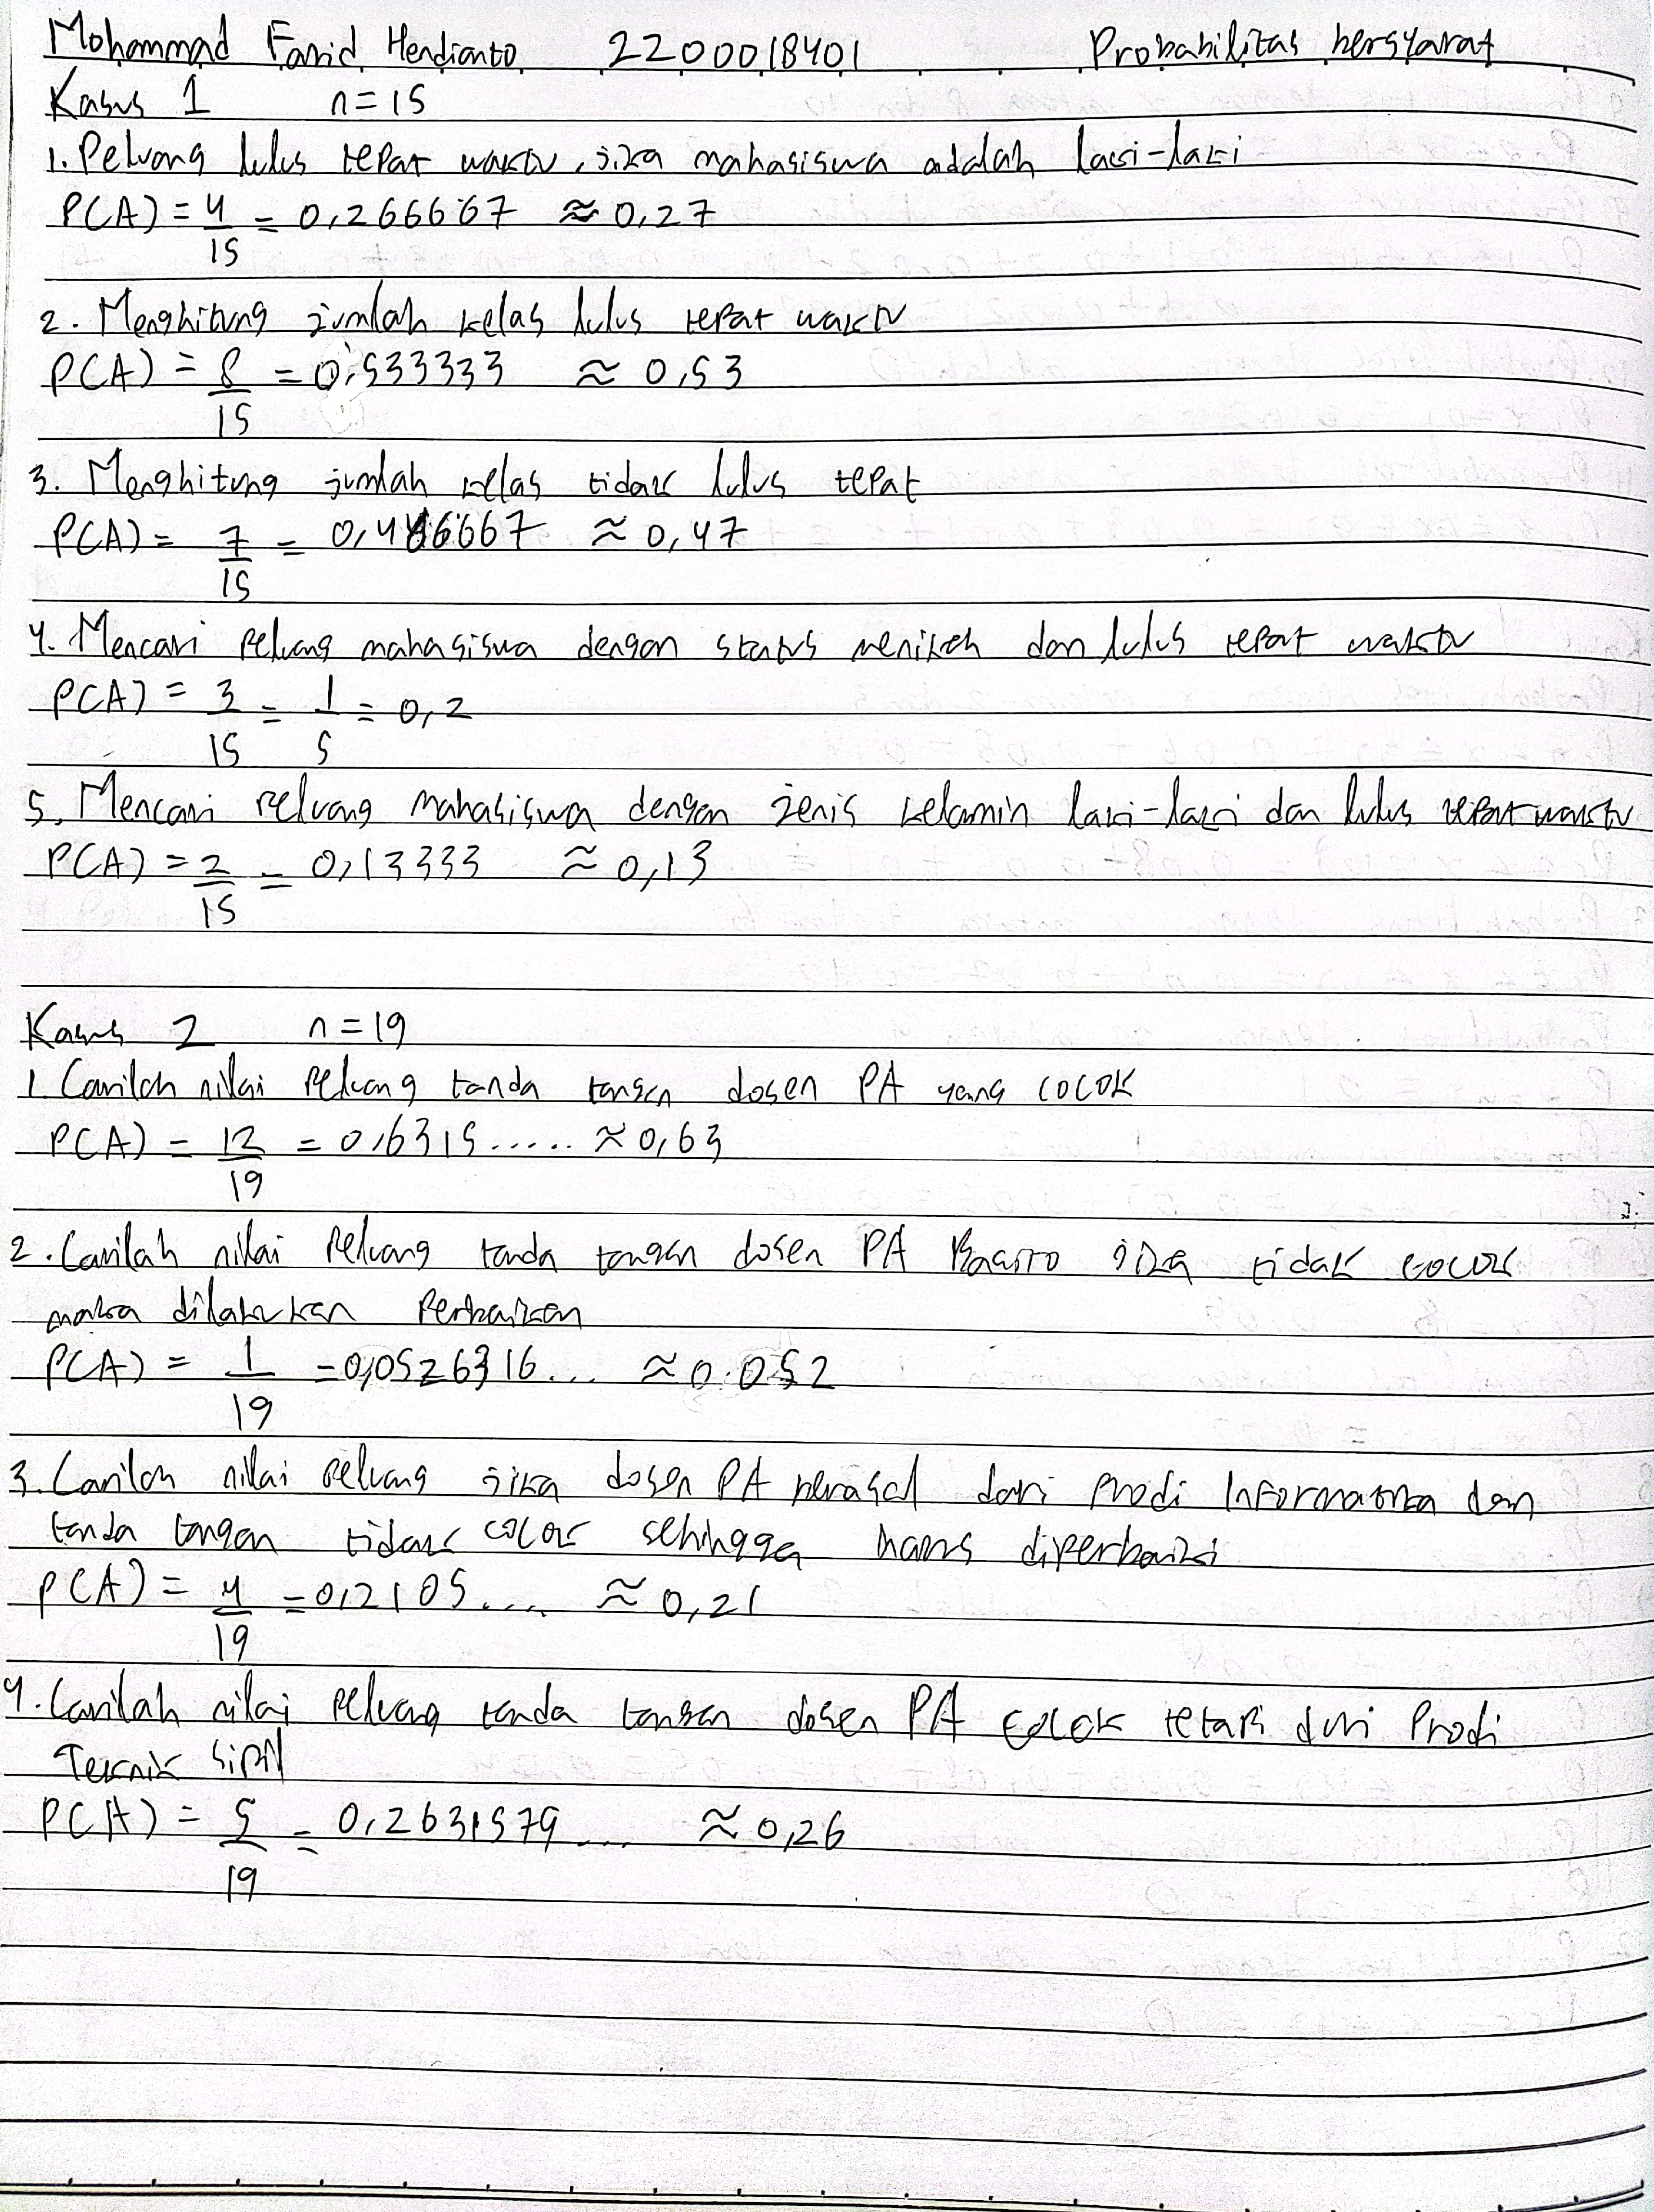 Mohammad Farid Hendianto 2200018401 Probabilitas bersyarat
Kasus 1 n=15
1. Peluang lulus tepat waktu, jika mahasiswa adalah laki-laki
P(A) = 4/15 = 0,266667 ≈ 0,27
2. Menghitung jumlah kelas lulus tepat waktu
P(A) = 8/15 = 0,533333 ≈ 0,53
3. Menghitung jumlah kelas tidak lulus tepat
P(A) = 7/15 = 0,466667 ≈ 0,47
4. Mencari peluang mahasiswa dengan status menikah dan lulus tepat waktu
P(A) = 3/15 = 1/5 = 0,2
5. Mencari peluang mahasiswa dengan jenis kelamin laki-laki dan lulus tepat waktu
P(A) = 2/15 = 0,13333 ≈ 0,13
Kasus 2 n=19
1. Carilah nilai peluang tanda tangan dosen PA yang cocok
P(A) = 12/19 = 0,6315..... ≈ 0,63
2. Carilah nilai peluang tanda tangan dosen PA jika tidak cocok
maka dilakukan perbaikan
P(A) = 1/19 = 0,0526316... ≈ 0.052
3. Carilah nilai peluang jika dosen PA berasal dari prodi Informatika dan
tanda tangan tidak cocok sehingga harus diperbaiki
P(A) = 4/19 = 0,2105.... ≈ 0,21
4. Carilah nilai peluang tanda tangan dosen PA cocok tetapi dari Prodi
Teknik Sipil
P(A) = 5/19 = 0,2631579.... ≈ 0,26